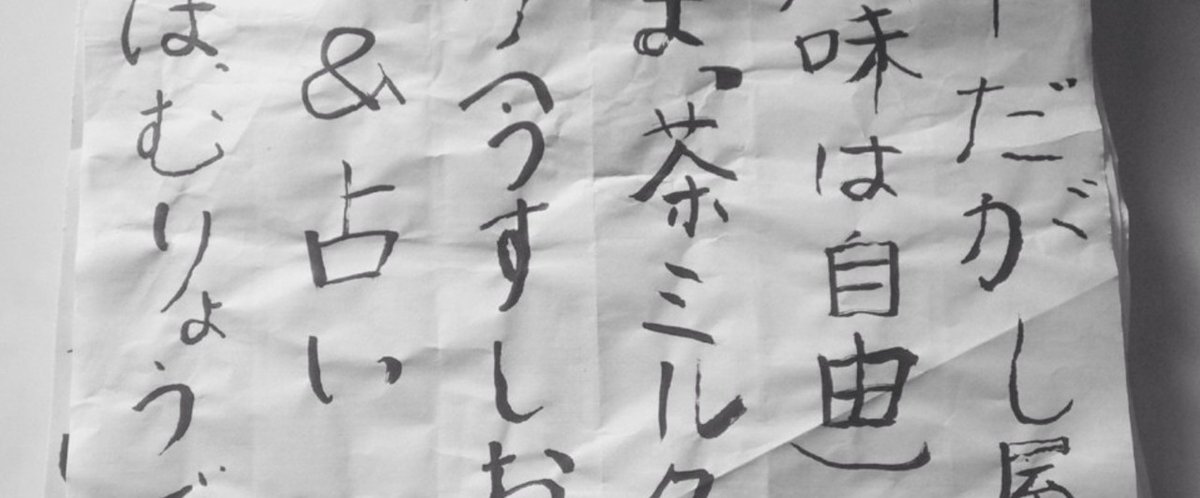 ーだがし屋
味は自由
まっ茶ミルク
うすしお
&占い
は、むりょうで